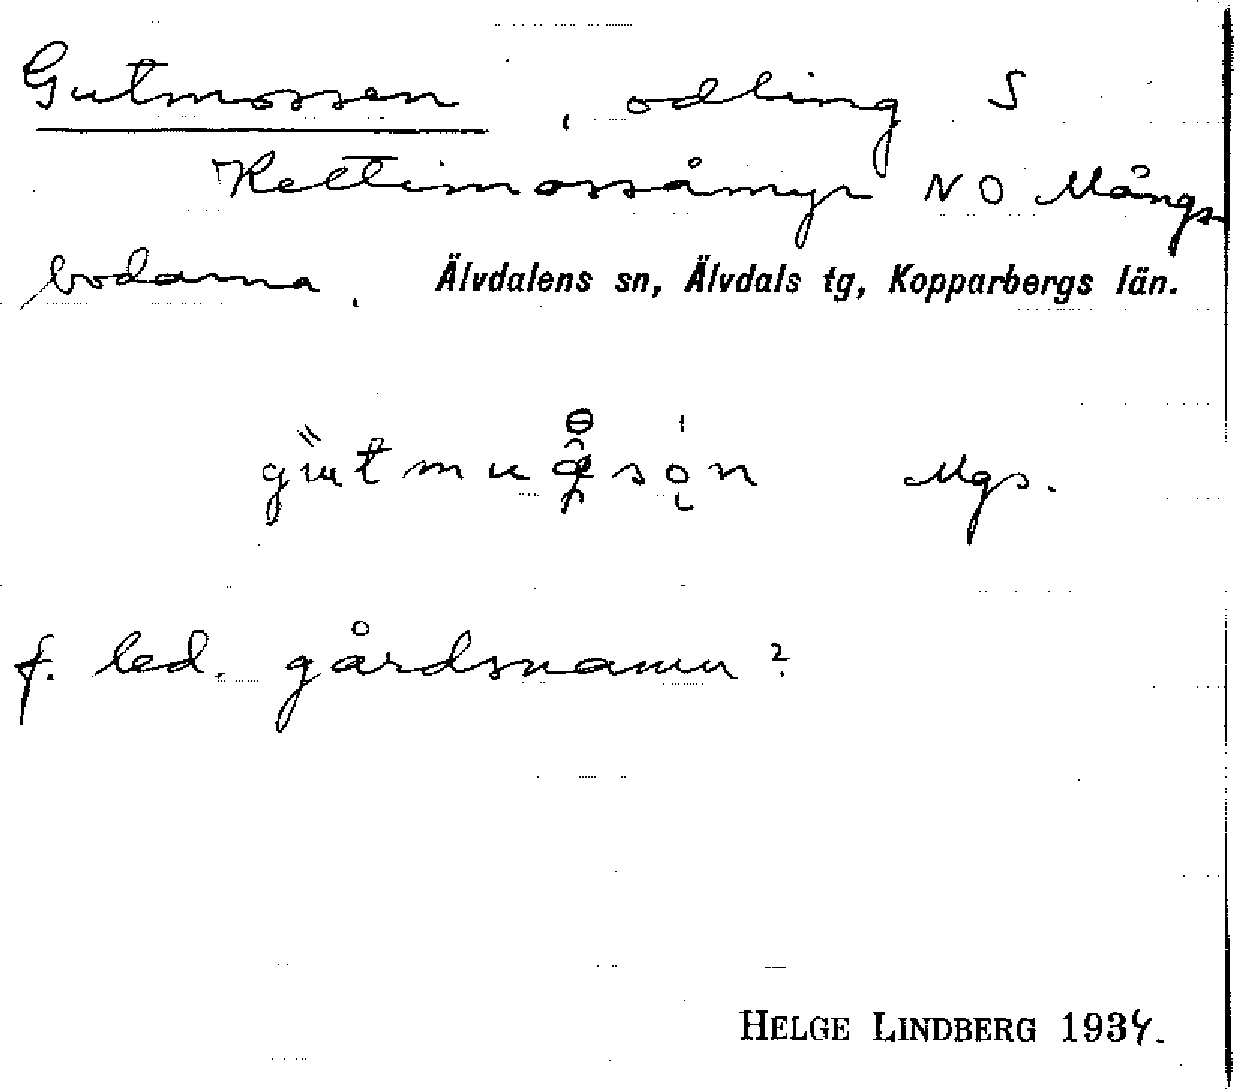 Gutmossen, odling S
Keltimossåmyr NO Mångs
bodarna. Älvdalens sn, Älvdals tg, Kopparbergs län.
Mgs.
f. led. gårdsnamn?
HELGE LINDBERG 1934.